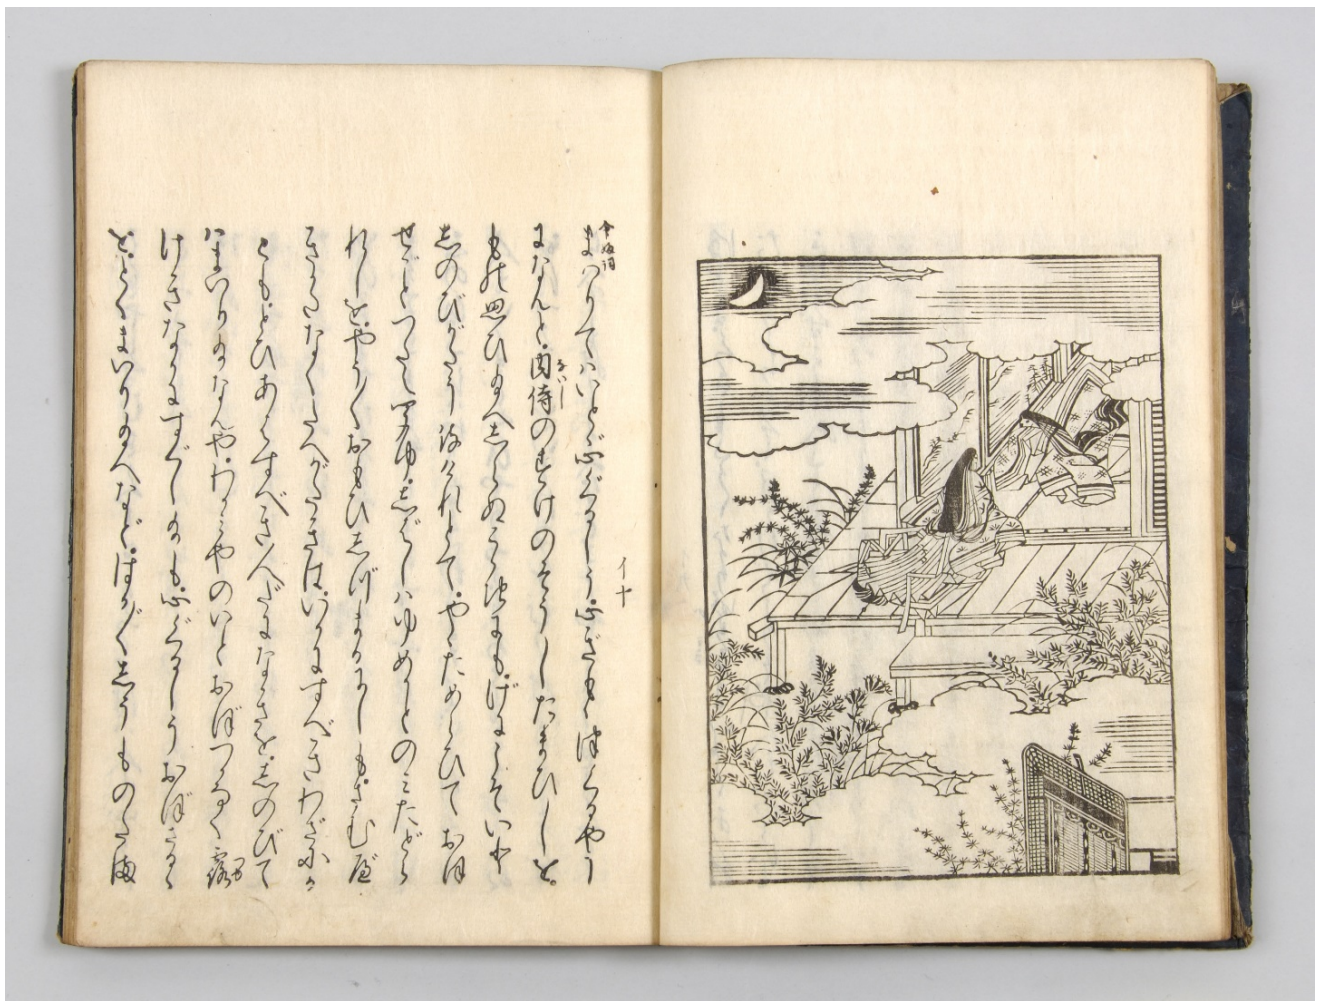 命婦詞
まいりてハいとゞ心ぐるしう。心ぎもゝつくるやう
になんと。内侍のすけのそうしたまひしを。
ないし
もの思ひ給へしらぬ心地にも。げにこそいと
しのびがたう侍けれとて。やゝためらひておほ
せごとつたへきこゆ。しばしハゆめかとのみたどら
れしを。やう〳〵おもひしづまるにしも。さむべ
きかたなくたへがたきは。いかにすべきわざにか
ともとひあハすべき人だになきを。しのびて
ハまいり給なんや。わかみやのいとおぼつかなく。露
つゆ
けきなかにすぐし給も。心ぐるしうおぼさるゝ
を。とくまいり給へなど。はか〴〵しうものたま
イ十